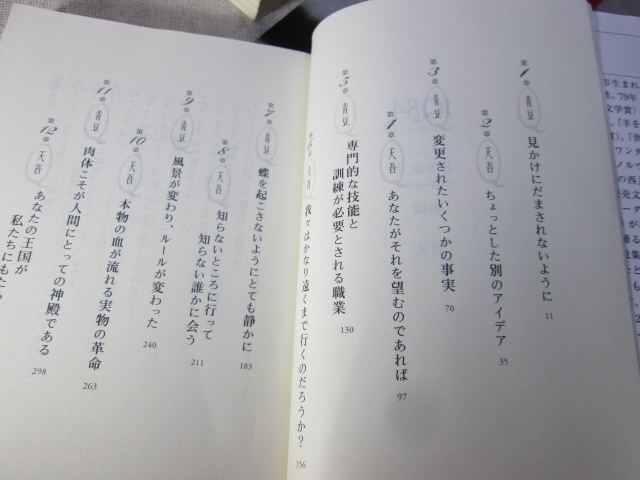 第1章 青豆 見かけにだまされないように 11
第2章 天吾 ちょっとした別のアイデア 35
第3章 青豆 変更されたいくつかの事実 70
第4章 天吾 あなたがそれを望むのであれば 97
第5章 青豆 専門的な技能と
訓練が必要とされる職業 130
第6章 天吾 我々はかなり遠くまで行くのだろうか？ 156
第7章 青豆 蝶を起こさないようにとても静かに 183
第8章 天吾 知らないところに行って
知らない誰かに会う 211
第9章 青豆 風景が変わり、ルールが変わった 240
第10章 天吾 本物の血が流れる実物の革命 263
第11章 青豆 肉体こそが人間にとっての神殿である 298
第12章 天吾 あなたの王国が
私たちにもた